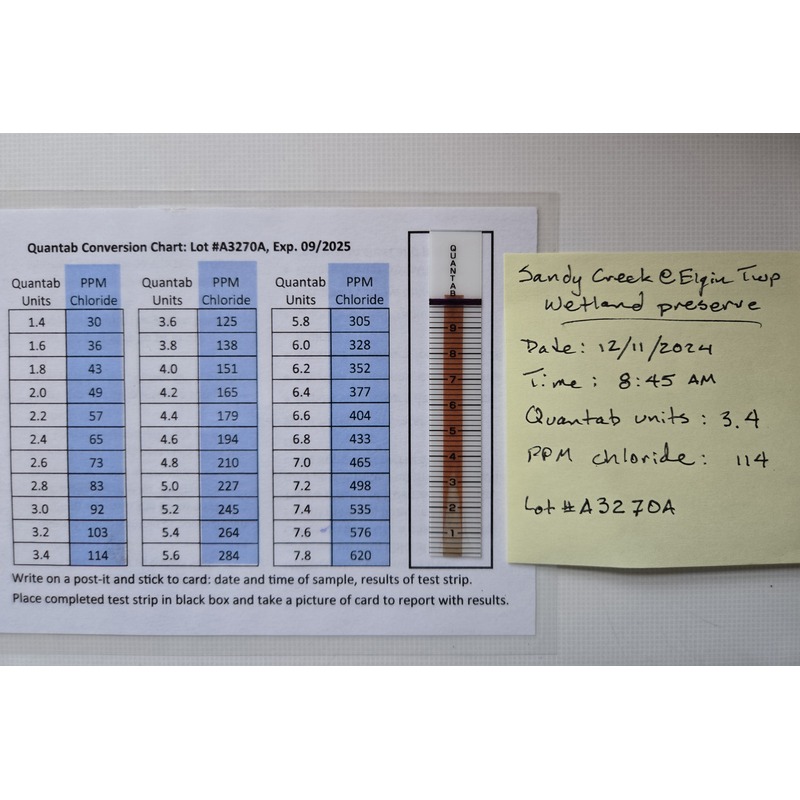 Quantab Conversion Chart: Lot #A3270A, Exp. 09/2025
Quantab Units PPM Chloride Quantab Units PPM Chloride Quantab Units PPM Chloride
1.4 30 3.6 125 5.8 305
1.6 36 3.8 138 6.0 328
1.8 43 4.0 151 6.2 352
2.0 49 4.2 165 6.4 377
2.2 57 4.4 179 6.6 404
2.4 65 4.6 194 6.8 433
2.6 73 4.8 210 7.0 465
2.8 83 5.0 227 7.2 498
3.0 92 5.2 245 7.4 535
3.2 103 5.4 264 7.6 576
3.4 114 5.6 284 7.8 620
Write on a post-it and stick to card: date and time of sample, results of test strip.
Place completed test strip in black box and take a picture of card to report with results.
QUANTAB
9
8
7
6
5
4
3
2
1
Sandy Creek @ Elgin Twp
Wetland preserve
Date: 12/11/2024
Time: 8:45 AM
Quantab units: 3.4
PPM chloride: 114
Lot # A3270A